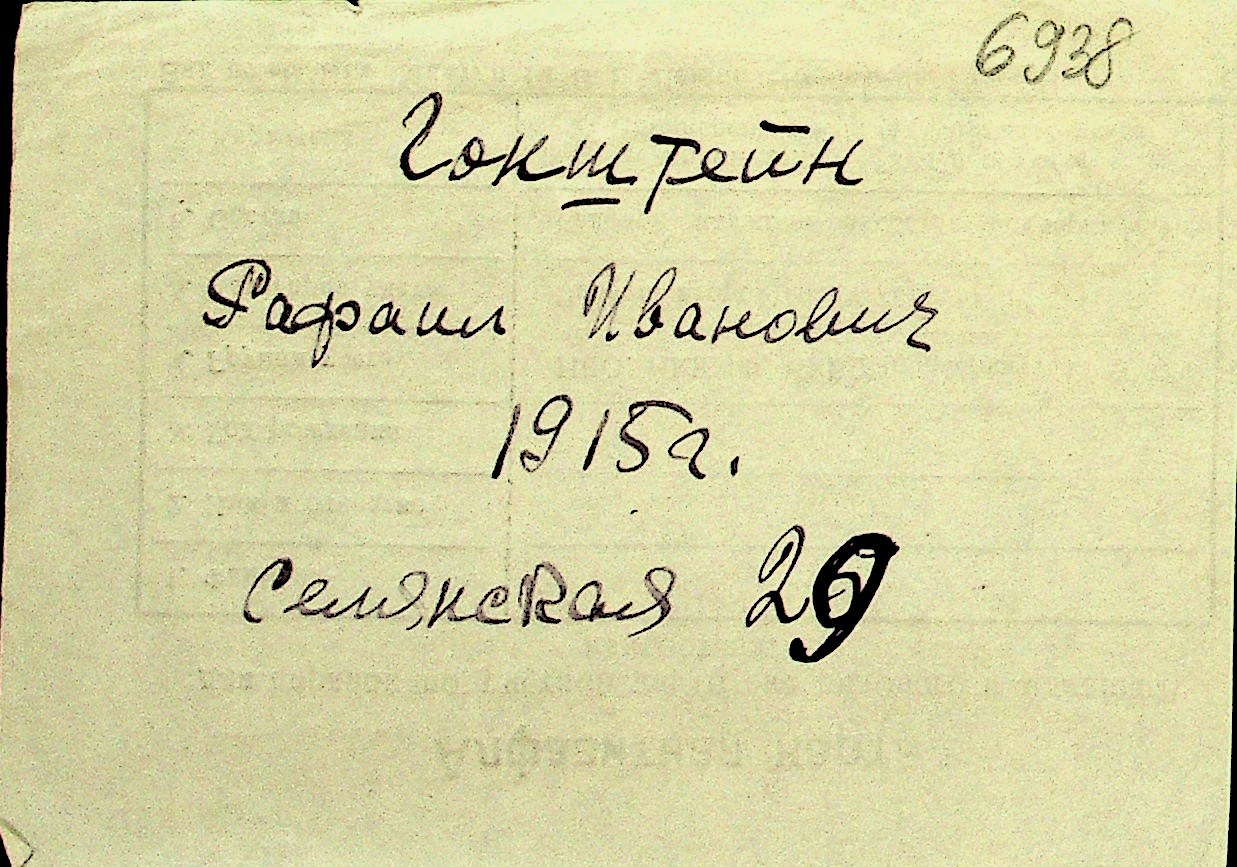 6938
Гокштейн
Рафаил Иванович
1915г.
Семянская 29